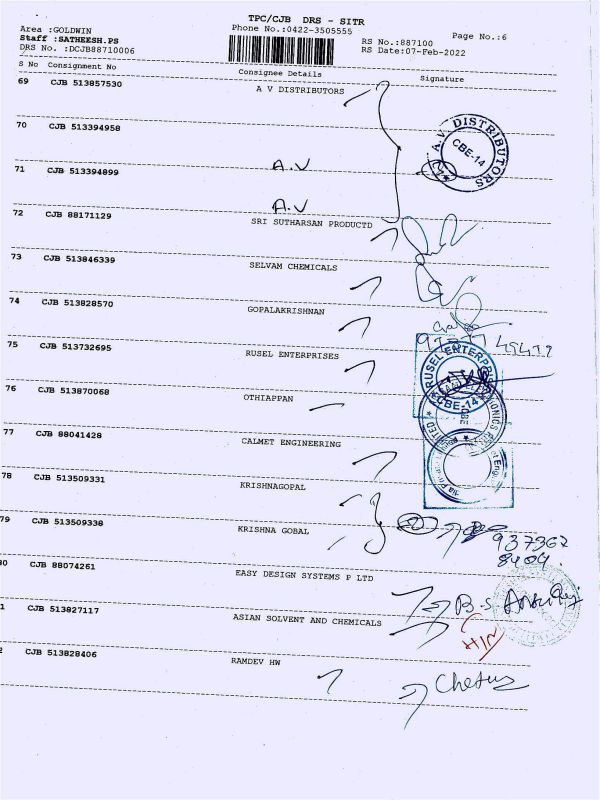 TPC/CJB DRS - SITR
Area :GOLDWIN
Phone No.:0422-3505555
Page No.:6
Staff :SATHEESH.PS
RS No.:887100
DRS No. :DCJB88710006
RS Date:07-Feb-2022
S No Consignment No Consignee Details Signature
69 CJB 513857530 A V DISTRIBUTORS
70 CJB 513394958
A.V DISTRIBUTORS
CBE-14
71 CJB 513394899 A.V
A.V
72 CJB 88171129 SRI SUTHARSAN PRODUCTD
73 CJB 513846339 SELVAM CHEMICALS
74 CJB 513828570 GOPALAKRISHNAN
75 CJB 513732695 RUSEL ENTERPRISES
RUSEL ENTERPRIS
CBE-14
76 CJB 513870068 OTHIAPPAN
77 CJB 88041428 CALMET ENGINEERING
78 CJB 513509331 KRISHNAGOPAL
79 CJB 513509338 KRISHNA GOBAL
937367
8404.
80 CJB 88074261 EASY DESIGN SYSTEMS P LTD
B.S
1 CJB 513827117 ASIAN SOLVENT AND CHEMICALS
2 CJB 513828406 RAMDEV HW